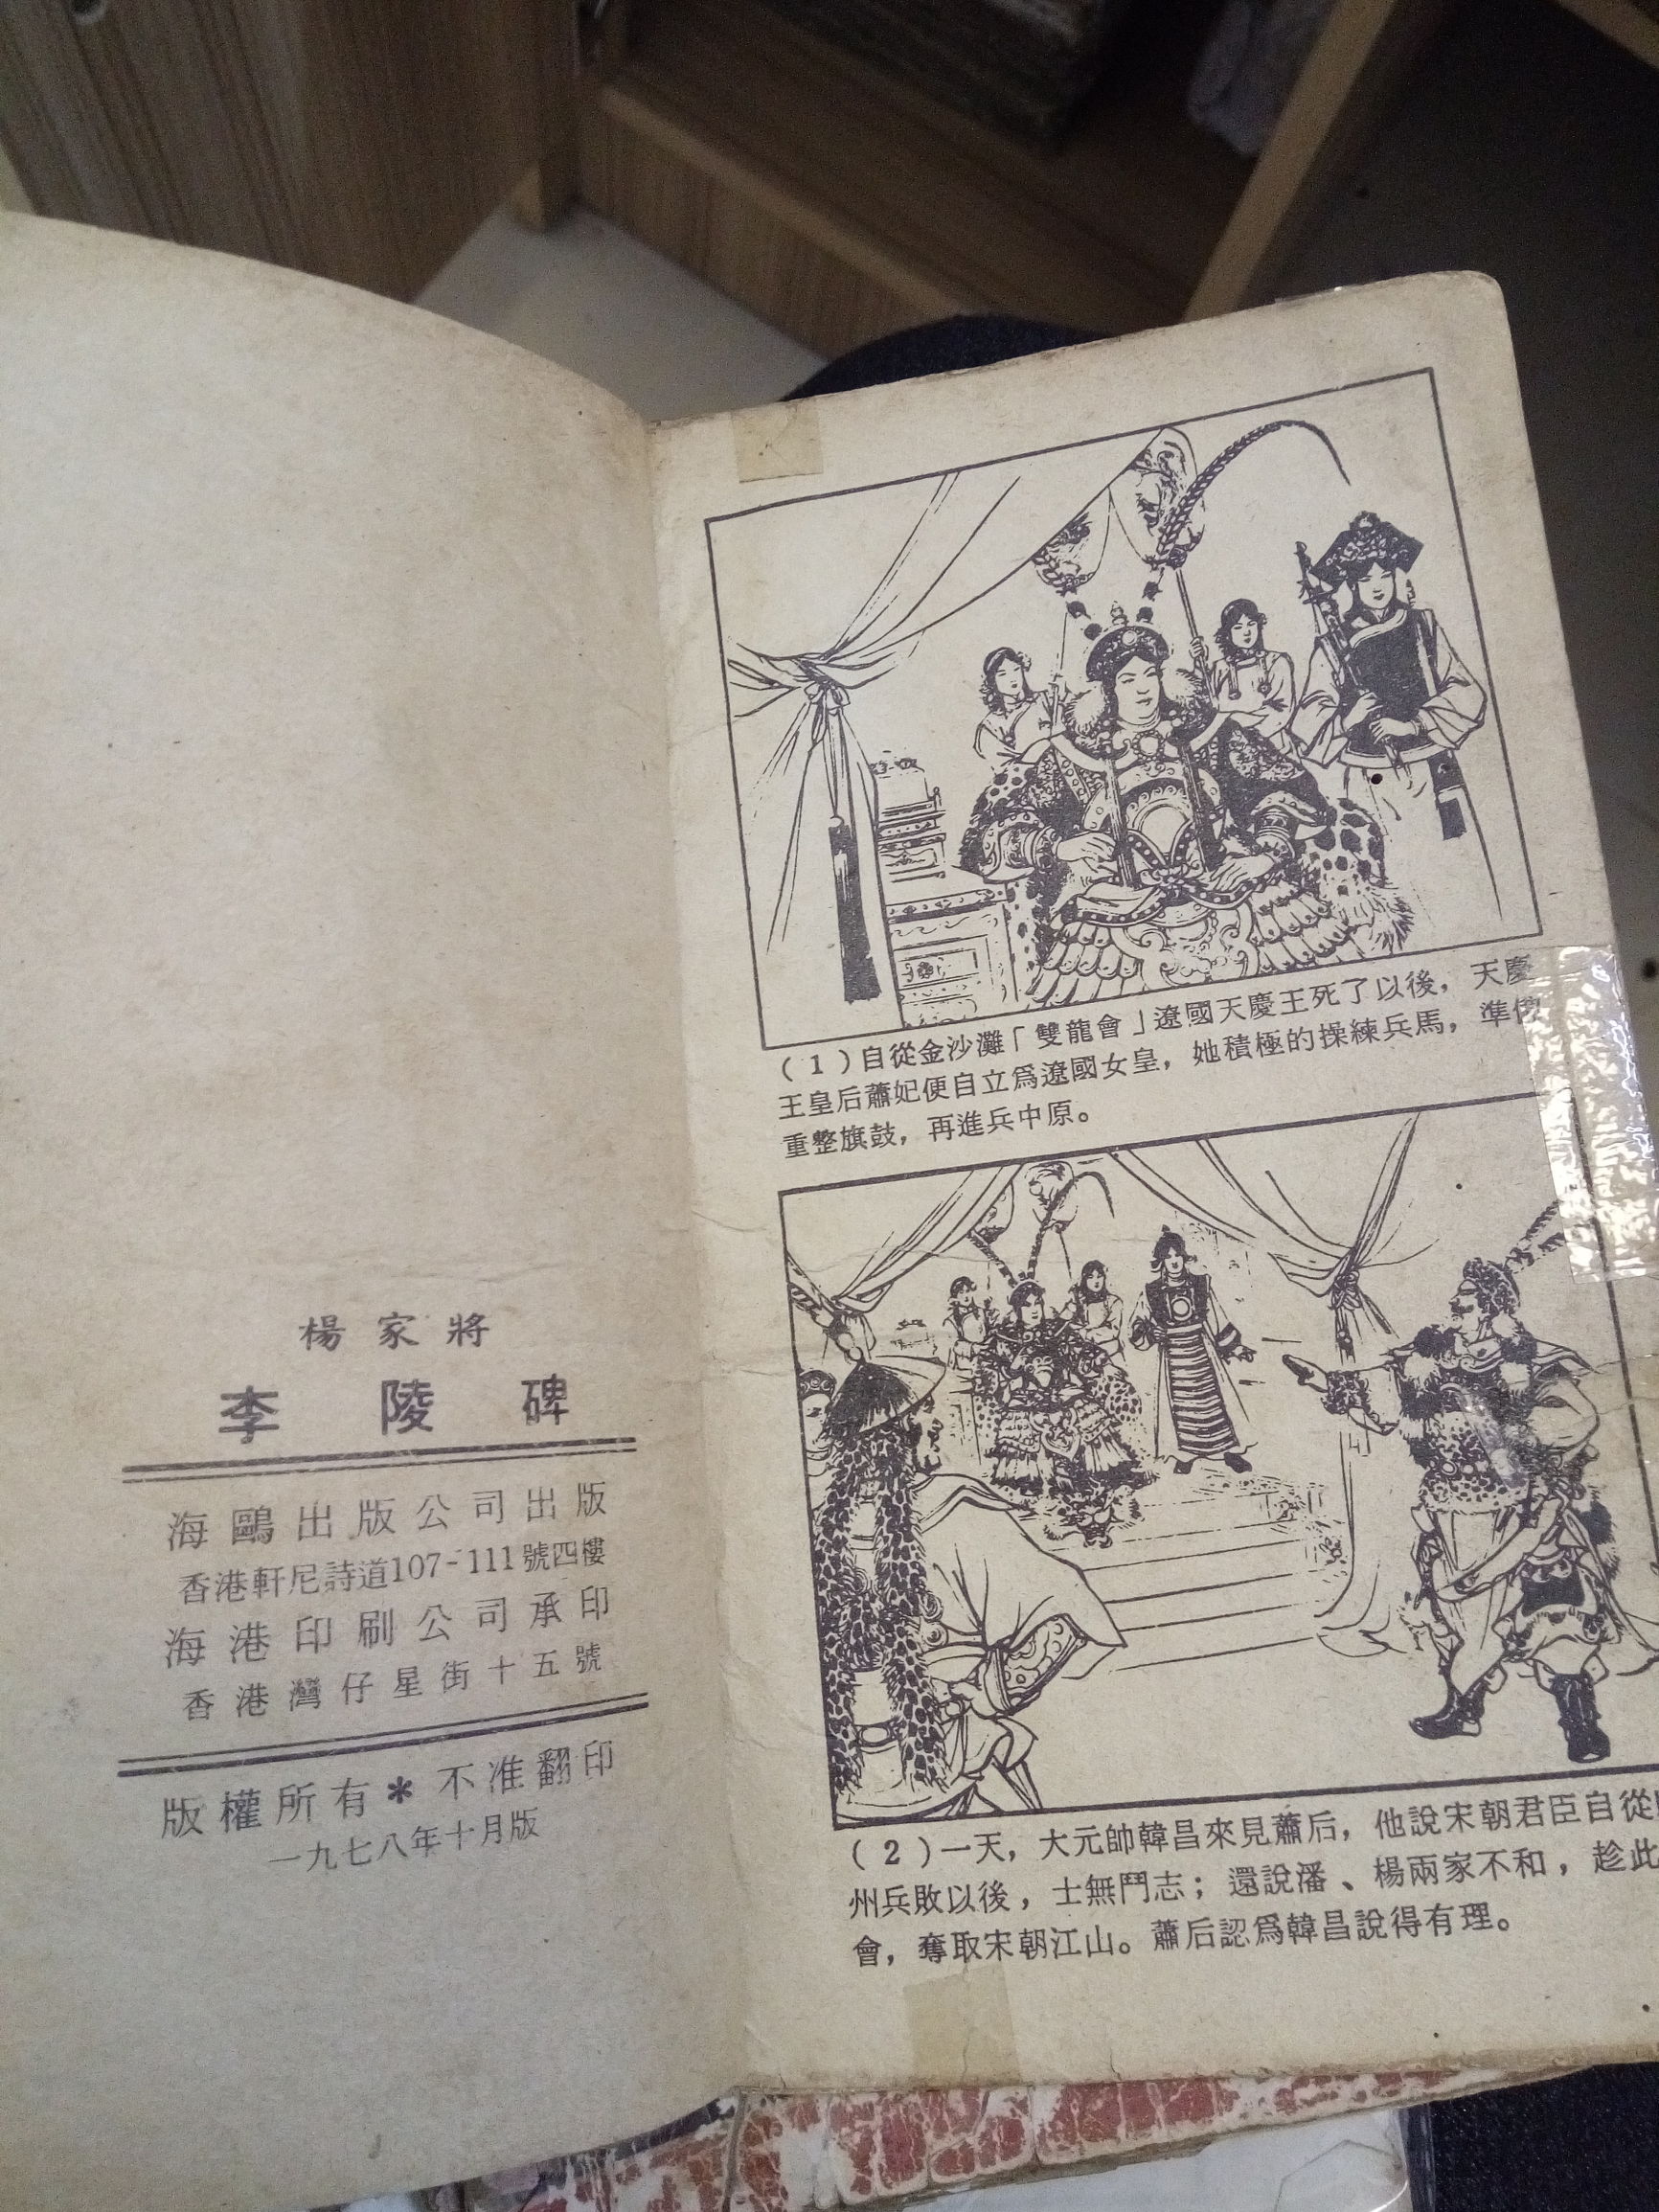 楊家將
李陵碑
海鷗出版公司出版
香港軒尼詩道107-111號四樓
海港印刷公司承印
香港灣仔星街十五號
版權所有*不准翻印
一九七八年十月版
(1)自從金沙灘「雙龍會」遼國天慶王死了以後，天慶
王皇后蕭妃便自立爲遼國女皇，她積極的操練兵馬，準備
重整旗鼓，再進兵中原。
(2)一天，大元帥韓昌來見蕭后，他說宋朝君臣自從
州兵敗以後，士無鬥志；還說潘、楊兩家不和，趁此
會，奪取宋朝江山。蕭后認爲韓昌說得有理。